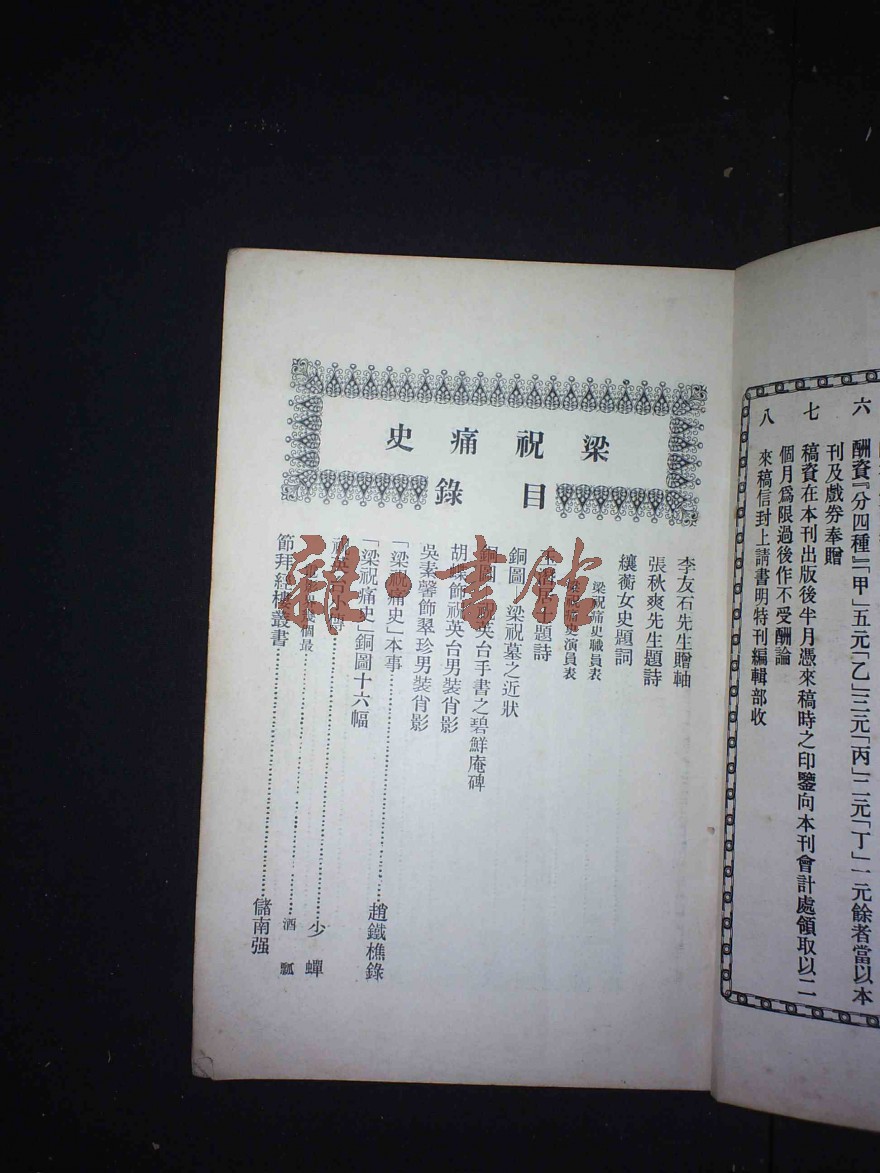 六 酬資『分四種』『甲』五元『乙』三元『丙』二元『丁』一元餘者當以本
刊及戲券奉贈
七 稿資在本刊出版後半月憑來稿時之印鑒向本刊會計處領取以二
個月爲限過後作不受酬論
八 來稿信封上請書明特刊編輯部收
梁祝痛史
目錄
李友石先生贈軸
張秋爽先生題詩
蘅女史題詞
梁祝痛史職員表
梁祝痛史演員表
居士題詩
銅圖 梁祝墓之近狀
銅圖 祝英台手書之碧鮮庵碑
胡蝶飾祝英台男裝肖影
吳素馨飾翠珍男裝肖影
「梁祝痛史」本事 趙鐵樵錄
「梁祝痛史」銅圖十六幅
祝英台小傳 少蟬
幾個最 酒瓢
節拜經樓叢書 儲南强
雜·書館